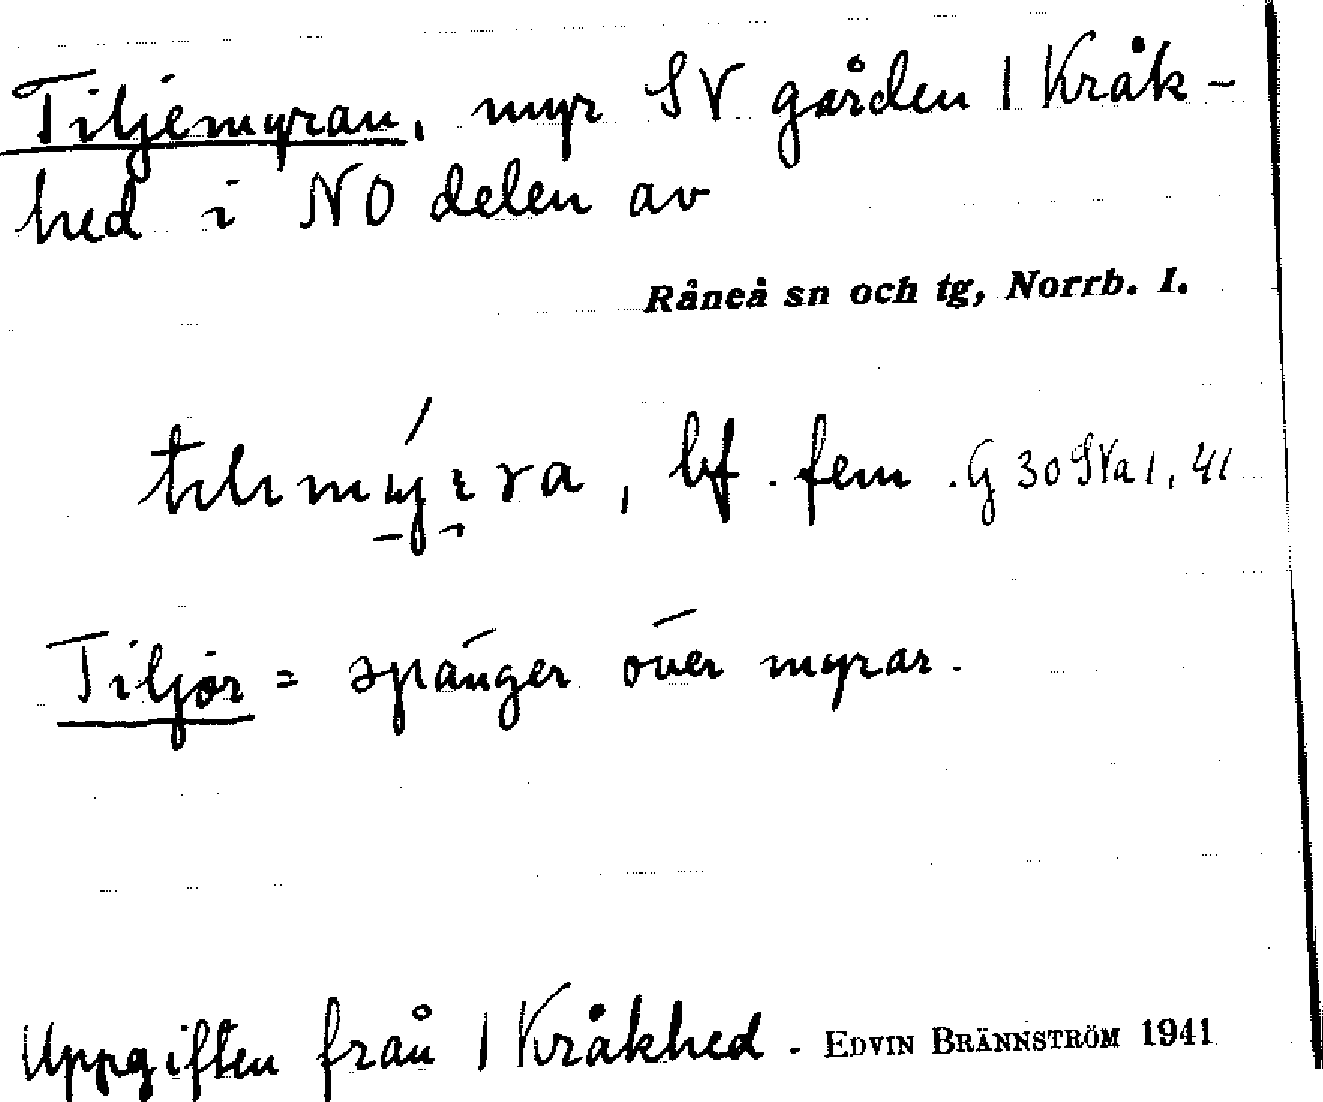 Tiljemyran, myr SV gården 1 Kråk-
hed i NO delen av
Råneå sn och tg, Norrb. l.
bf. fem. G 30 SVa 1, 41
Tiljor = spänger över myrar.
Uppgiften från 1 Kråkhed. EDVIN BRÄNNSTRÖM 1941